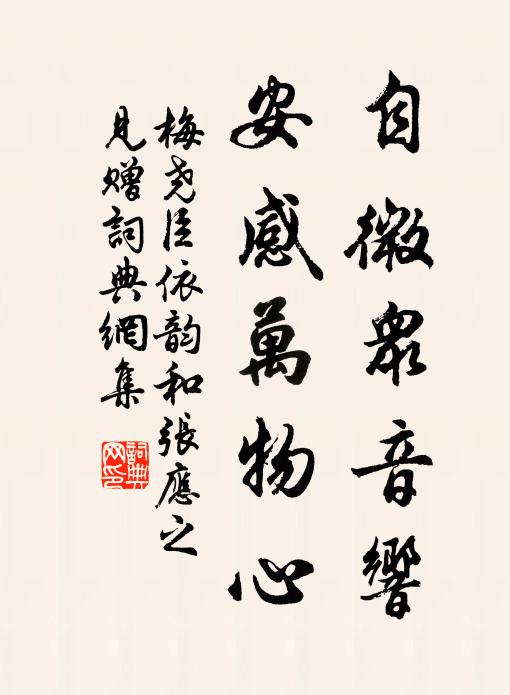 自微眾音響
安感萬物心
梅堯臣依韻和張應之
見贈詞典網集
詞典
网印